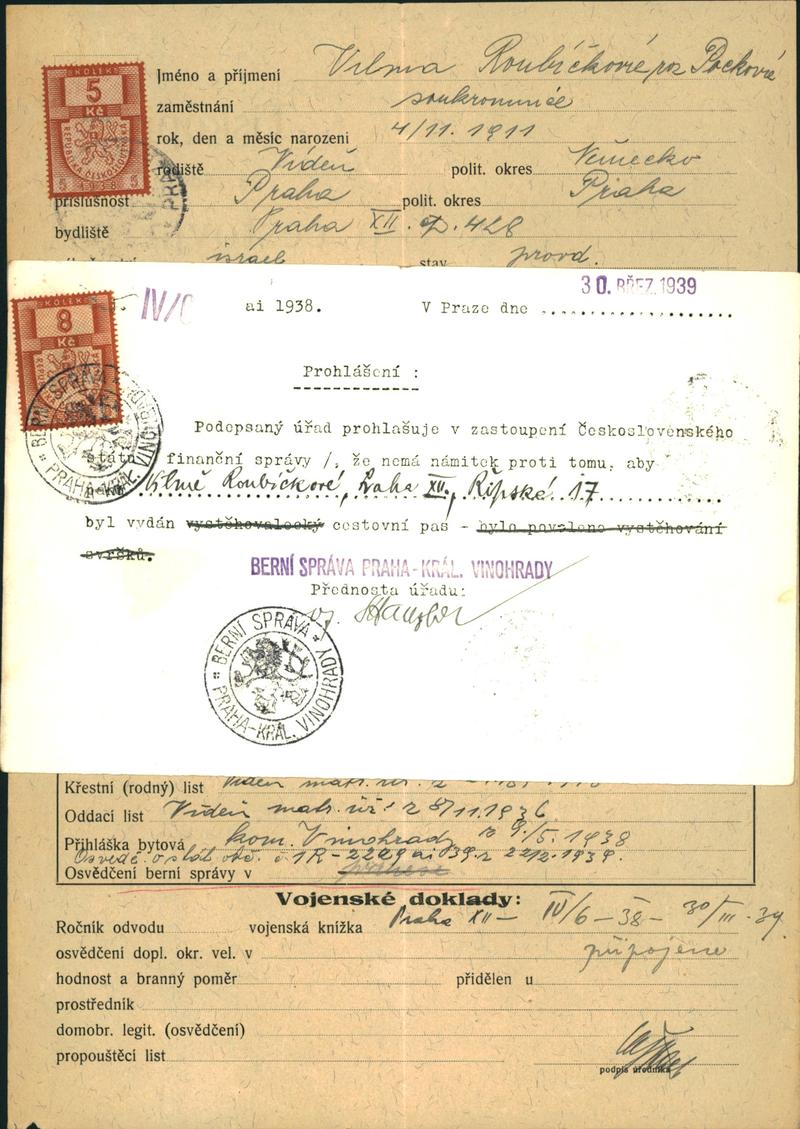 KOLEK
5
Kč
REPUBLIKA ČESKOSLOVENSKÁ
5 1938 5
Jméno a příjmení Vilma Roubíčková roz Pocková
zaměstnání soukromnice
rok, den a měsíc narozeni 4/11. 1911
rodiště Vídeň polit. okres Německo
příslušnost Praha polit. okres Praha
bydliště Praha XII. čp. 428
israel stav provd.
KOLEK
8
Kč
IV/6 ai 1938. V Praze dne 30. BŘEZ. 1939
Prohlášení :
Podepsaný úřad prohlašuje v zastoupení Československého
státu finanční správy /, že nemá námitek proti tomu, aby
Vilmě Roubíčkové, Praha XII., Řipská 17
byl vydán vystěhovalecký cestovní pas - bylo povoleno vystěhování
svršků.
BERNÍ SPRÁVA PRAHA-KRÁL. VINOHRADY
Přednosta úřadu:
BERNÍ SPRÁVA
PRAHA-KRÁL. VINOHRADY
BERNÍ SPRÁVA
PRAHA-KRÁL. VINOHRADY
Křestní (rodný) list Vídeň matr. úř. z
Oddací list Vídeň matr. úř. z 8/11.1936
Přihláška bytová kom. Vinohrady z 9./5. 1938
Osvěd. o stát. obč. č 1R-2229 ai 39 z 22/2. 1939.
Osvědčení berní správy v
Vojenské doklady:
Praha XII - IV/6-38- 30/III. 39
Ročník odvodu vojenská knížka
osvědčení dopl. okr. vel. v připojene
hodnost a branný poměr přidělen u
prostředník
domobr. legit. (osvědčení)
propouštěcí list
podpis úředníka